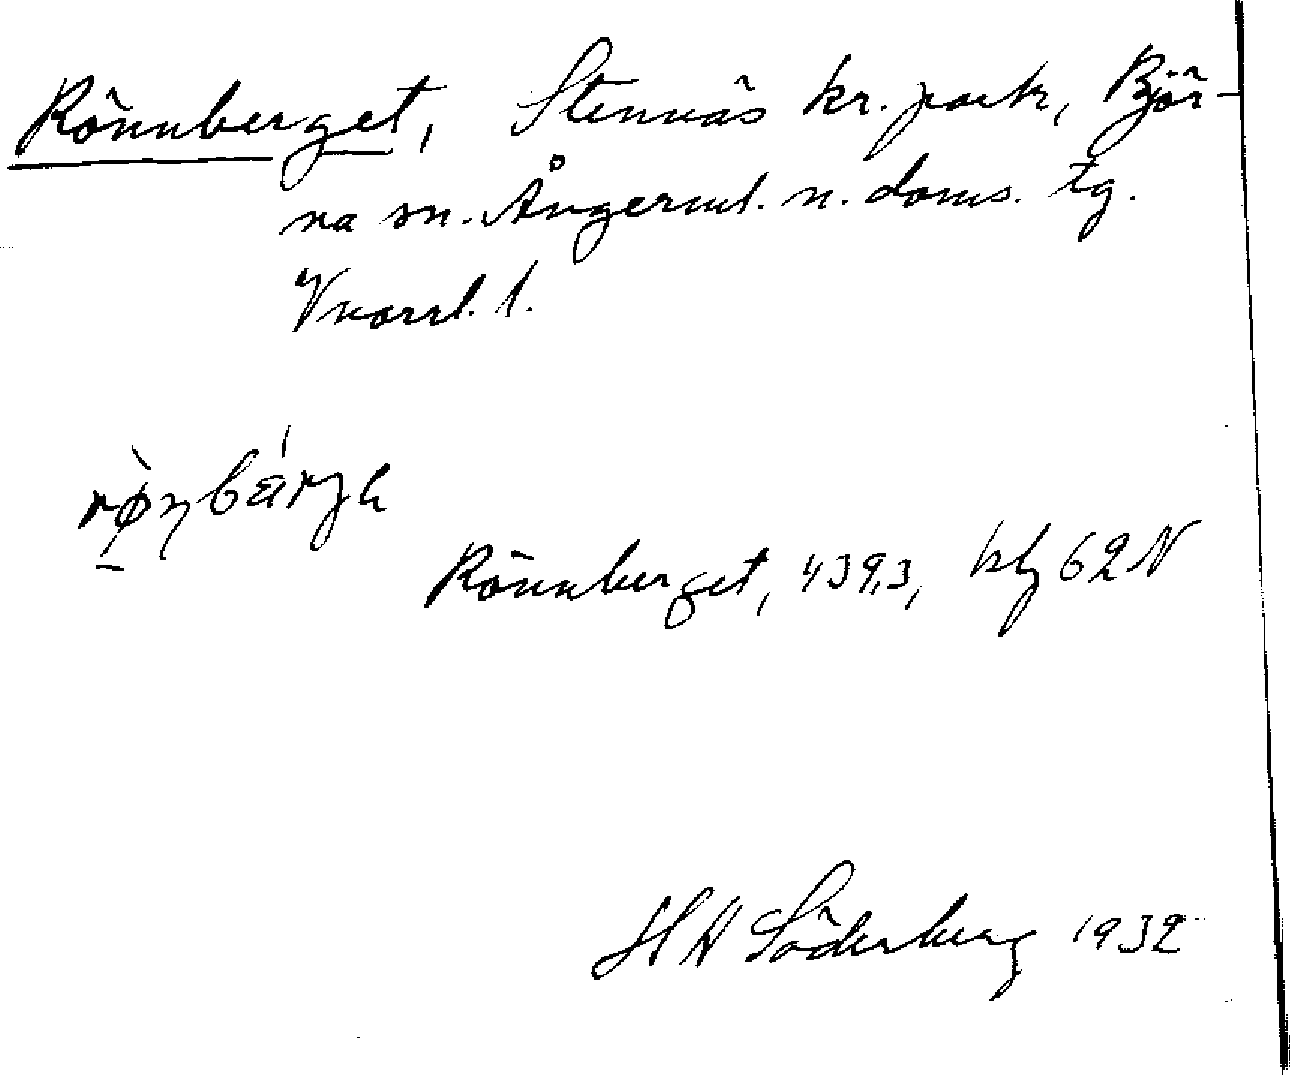 Rönnberget, Stennäs kr. park, Björ-
na sn. Ångerml. n. doms. tg.
Vnorrl. l.
Rönnberget, 439,3, kbl 62 N
H H Söderberg 1932